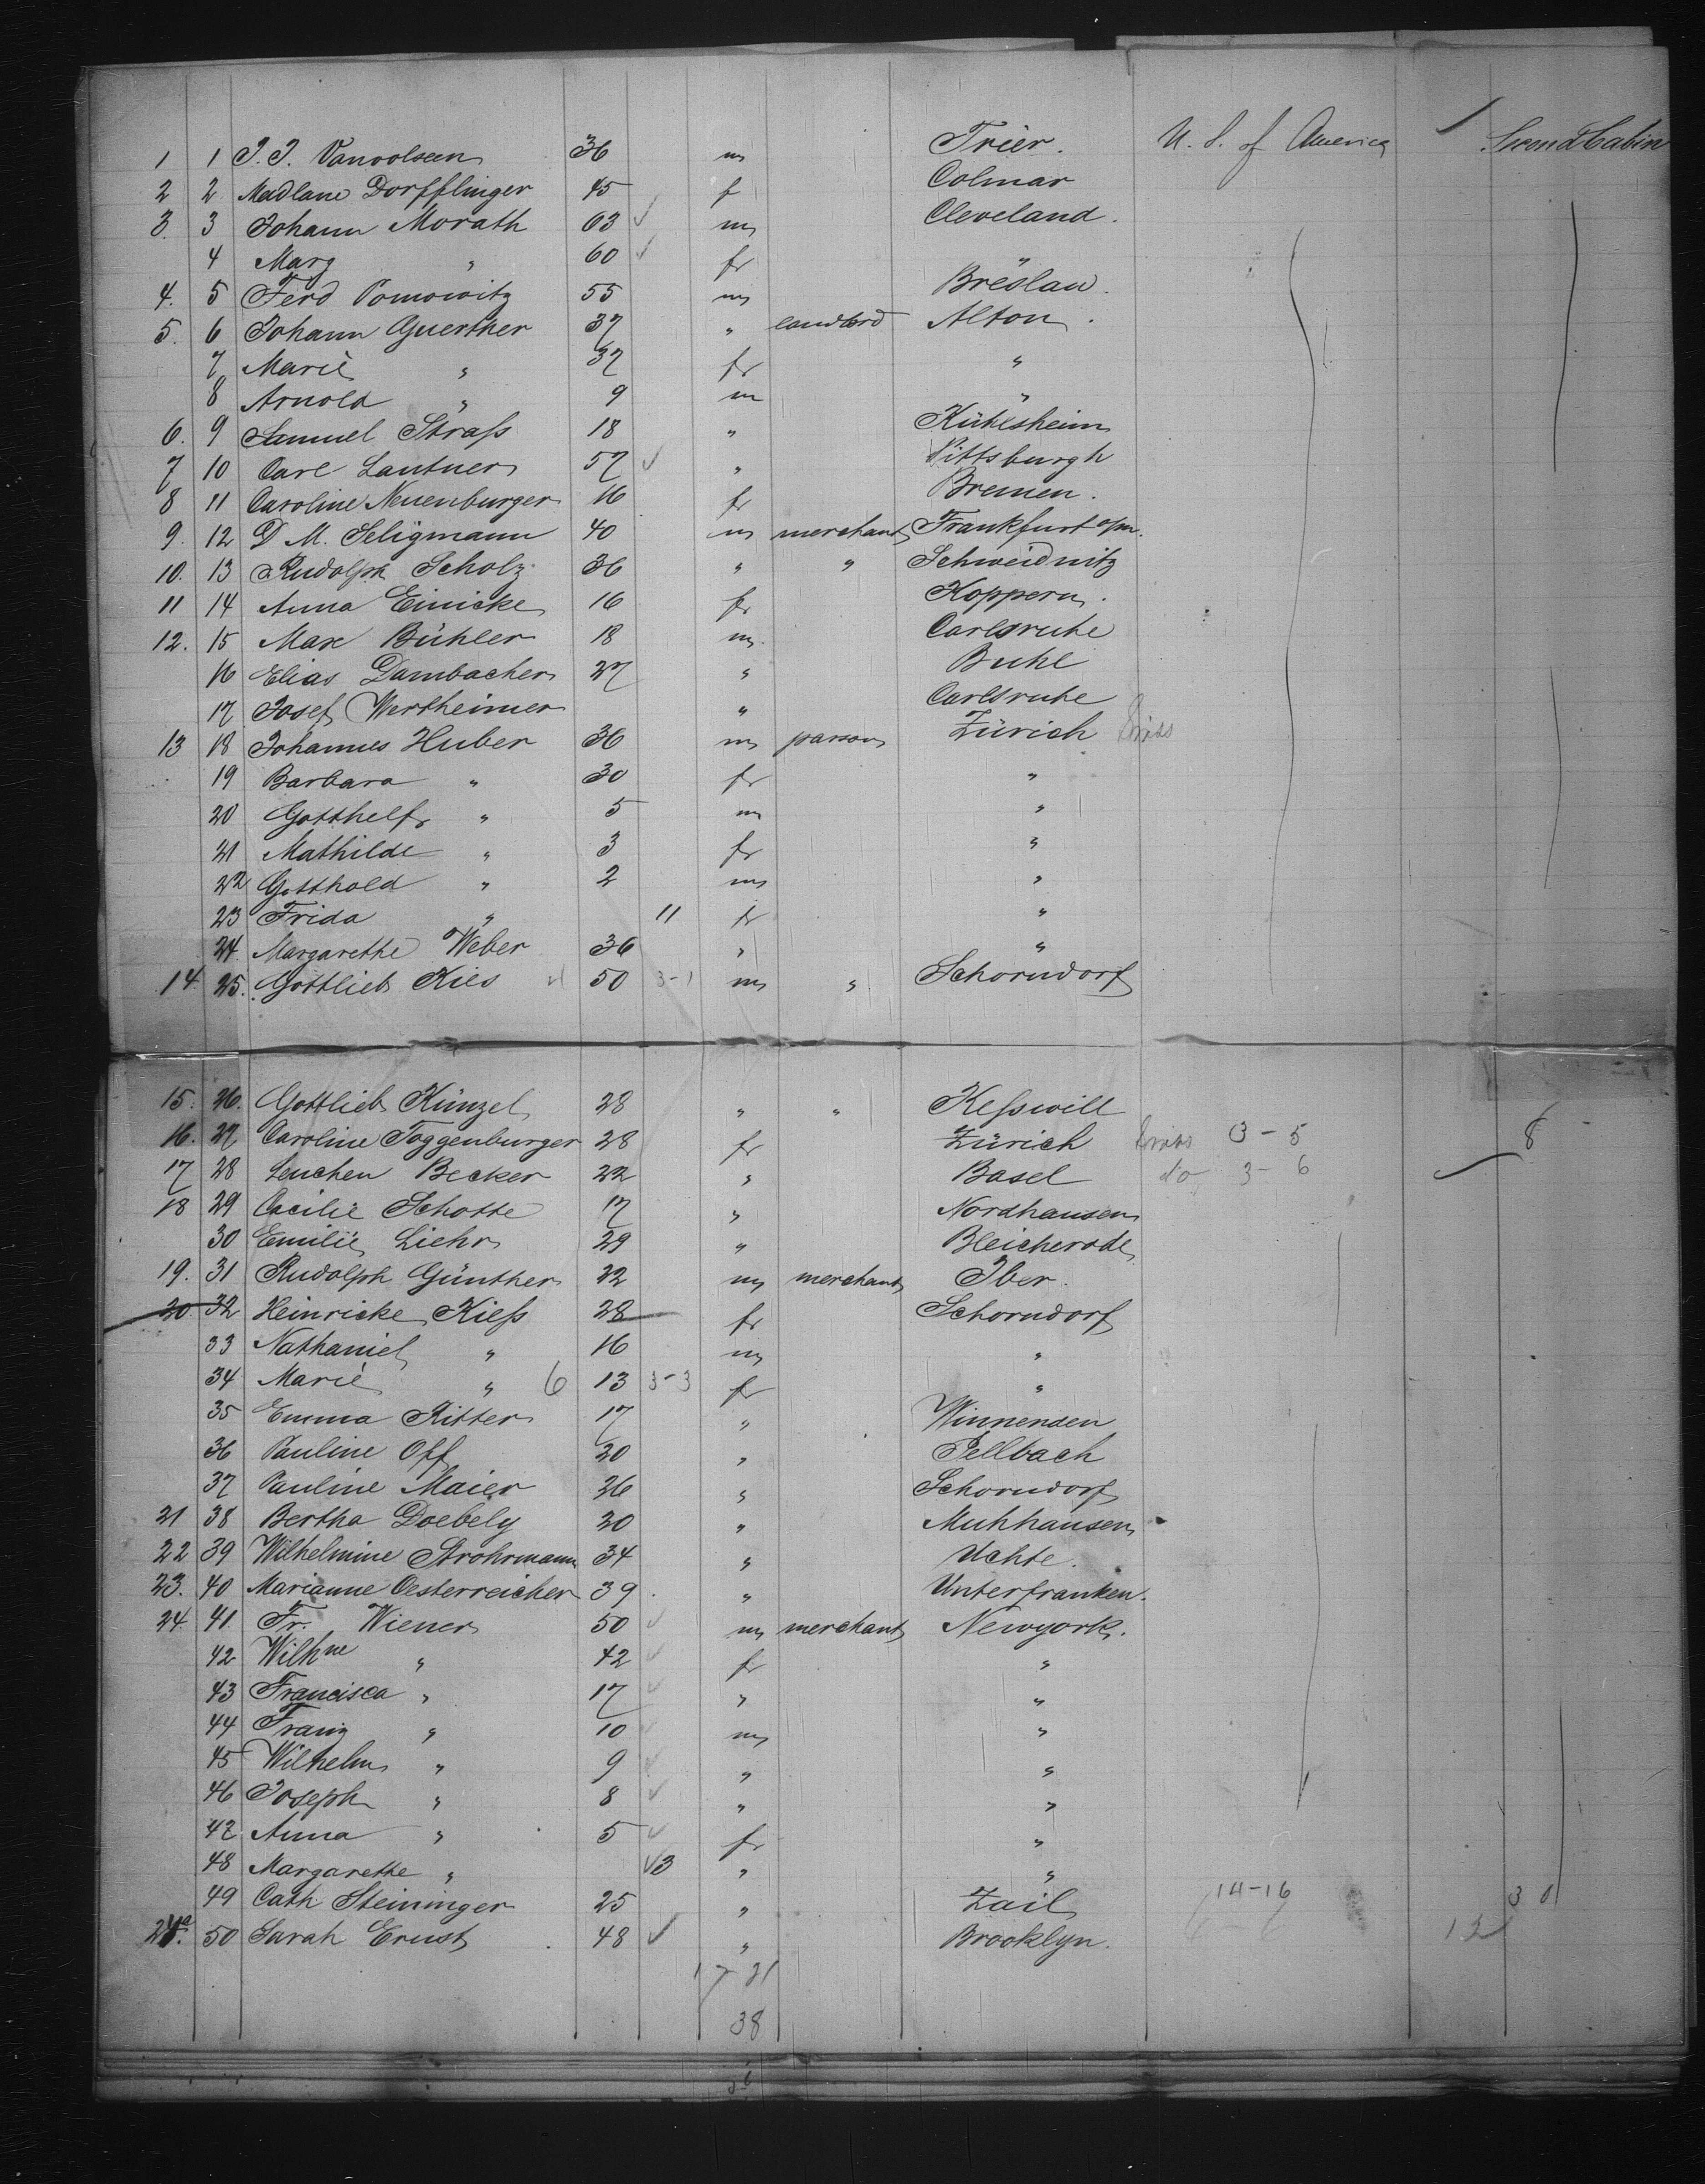 1 1 J. J. Vanvolseen 36 m Trier. U. S. of America Second Cabin
2 2 Madlane Dorfflinger 45 f Colmar
3. 3 Johann Morath 63 m Cleveland.
4 Marg " 60 fr
4. 5 Ferd Pomowitz 55 m Breslau.
5. 6 Johann Guerther 37 " landlord Alton.
7 Marie " 37 fr "
8 Arnold " 9 m "
6. 9 Samuel Straſs 18 " Kühlsheim
7 10 Carl Lantner 57 " Pittsburgh
8 11 Caroline Neuenburger 16 fr Bremen.
9. 12 D M. Seligmann 40 m merchant Frankfurt a/m.
10. 13 Rudolph Scholz 36 " " Schweidnitz
11 14 Anna Einicke 16 fr Koppern.
12. 15 Max Bühler 18 m. Carlsruhe
16 Elias Dambacher 27 " Buhl
17 Josef Wertheimer " Carlsruhe
13 18 Johannes Huber 36 m parson Zürich Swiss
19 Barbara " 30 fr "
20 Gotthelf " 5 m "
21 Mathilde " 3 fr "
22 Gotthold " 2 m "
23 Frida " 11 fr "
24. Margarethe Weber 36 " "
14 25. Gottlieb Kies 50 3-1 m " Schorndorf
15. 26. Gottlieb Künzel 28 " " Keſswill
16. 27 Caroline Toggenburger 28 fr Zürich Swiss 3-5 8
17 28 Lenchen Becker 22 " Basel do 3-6
18 29 Cacilie Schotte 17 " Nordhausen
30 Emilie Liehr 29 " Bleicherode
19. 31 Rudolph Günther 22 m merchant Iber.
20 32 Heinricke Kieſs 28 fr Schorndorf
33 Nathaniel " 16 m "
34 Marie " 6 13 3-3 fr "
35 Emma Ritter 17 " Winnenden
36 Pauline Off 20 " Fellbach
37 Pauline Maier 26 " Schorndorf
21 38 Bertha Doebely 20 " Muhhausen
22 39 Wilhelmine Strohrmann 34 " Uchte.
23. 40 Marianne Oesterreicher 39. " Unterfranken.
24 41 Fr. Wiener 50 m merchant Newyork.
42 Wilhne " 42 fr "
43 Francisca " 17 " "
44 Franz " 10 m "
45 Wilhelm " 9 " "
46 Joseph " 8 " "
47 Anna " 5 fr "
48 Margarethe " 3 " "
49 Cath Steininger 25 " Zail 14-16 3 0
24a. 50 Sarah Ernst 48 " Brooklyn. 13
17 21
38